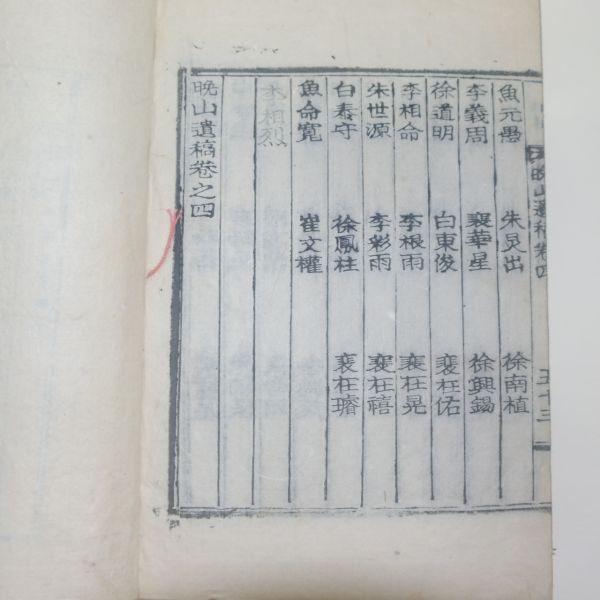 晩山遺稿卷四 五十三
魚元愚 朱炅出 徐南植
李義周 裵華星 徐興錫
徐道明 白東俊 裵枉佑
李相命 李根雨 裵枉晃
朱世源 李彩雨 裵枉禧
白泰守 徐鳳柱 裵枉璿
魚命寬 崔文權
李相烈
晩山遺稿卷之四